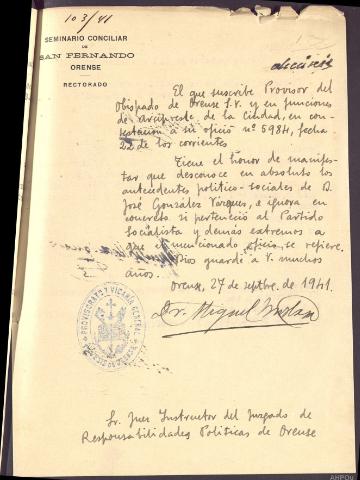 103/41
SEMINARIO CONCILIAR
DE
SAN FERNANDO
ORENSE
RECTORADO
El que suscribe Provisor del
Obispado de Orense S.V. y en funciones
de Arcipreste de la Ciudad, en con-
testación a su oficio nº 5984, fecha
22 de los corrientes
Tiene el honor de manifes-
tar que desconoce en absoluto los
antecedentes político-sociales de D.
José González Vázquez, e ignora en
concreto si perteneció al Partido
Socialista y demás extremos a
que el mencionado oficio se refiere.
Dios guarde a V. muchos
años.
Orense, 27 de septbre. de 1941.
Dr. Miguel
PROVISORATO Y VICARIA GENERAL
Sr. Juez Instructor del Juzgado de
Responsabilidades Políticas de Orense
AHPOU